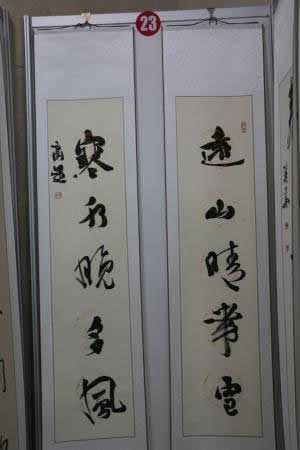 23
遠山晴帶雪
寒水晚多風